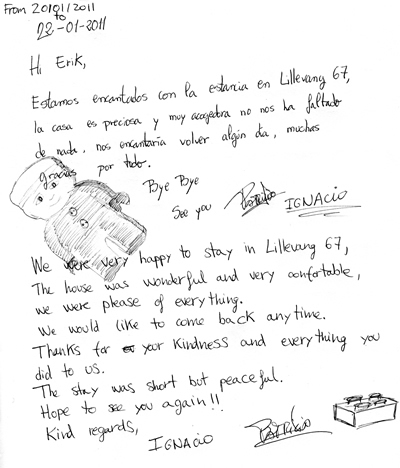 From 20/01/2011
to
22-01-2011
Hi Erik,
Estamos encantados con la estancia en Lillevang 67,
la casa es preciosa y muy acogedora no nos ha faltado
de nada, nos encantaría volver algún día, muchas
gracias por todo.
Bye Bye
See you Patricia IGNACIO
We were very happy to stay in Lillevang 67,
The house was wonderful and very confortable,
we were please of everything.
We would like to come back anytime.
Thanks for your kindness and everything you
did to us.
The stay was short but peaceful.
Hope to see you again!!
Kind regards,
IGNACIO Patricia